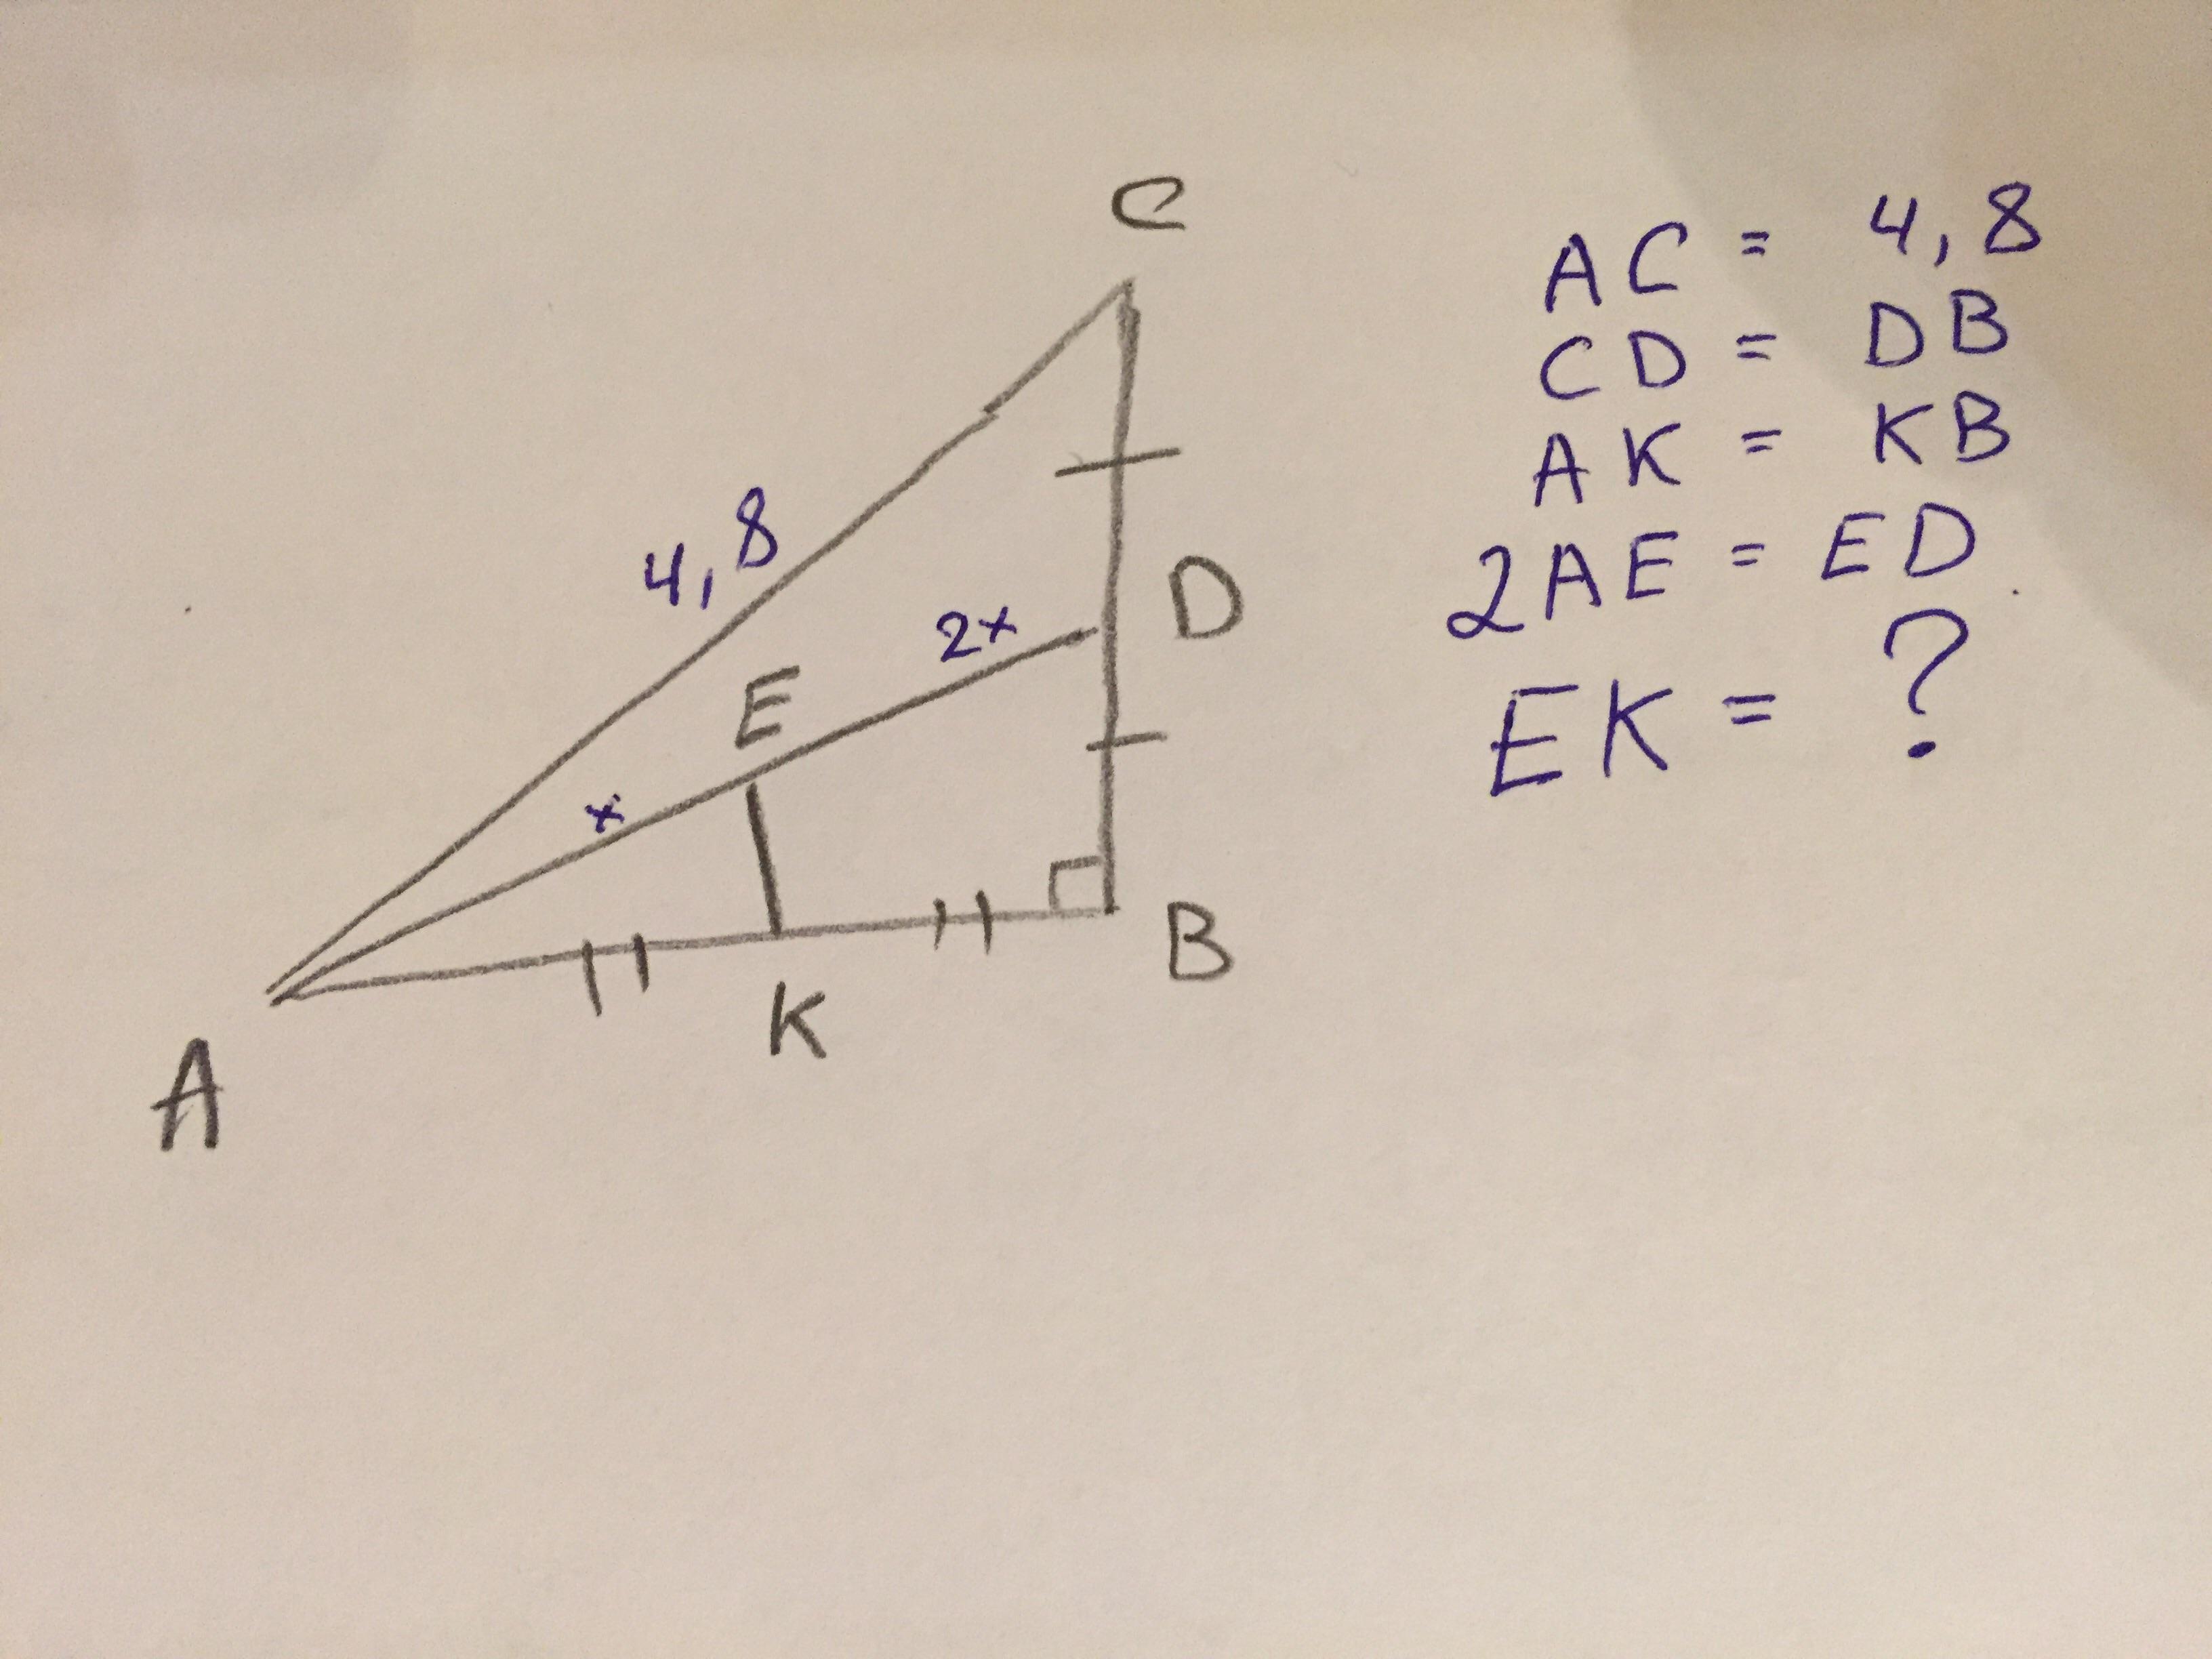 C
AC = 4,8
CD = DB
AK = KB
2AE = ED
EK = ?
4,8
D
2x
E
x
B
K
A